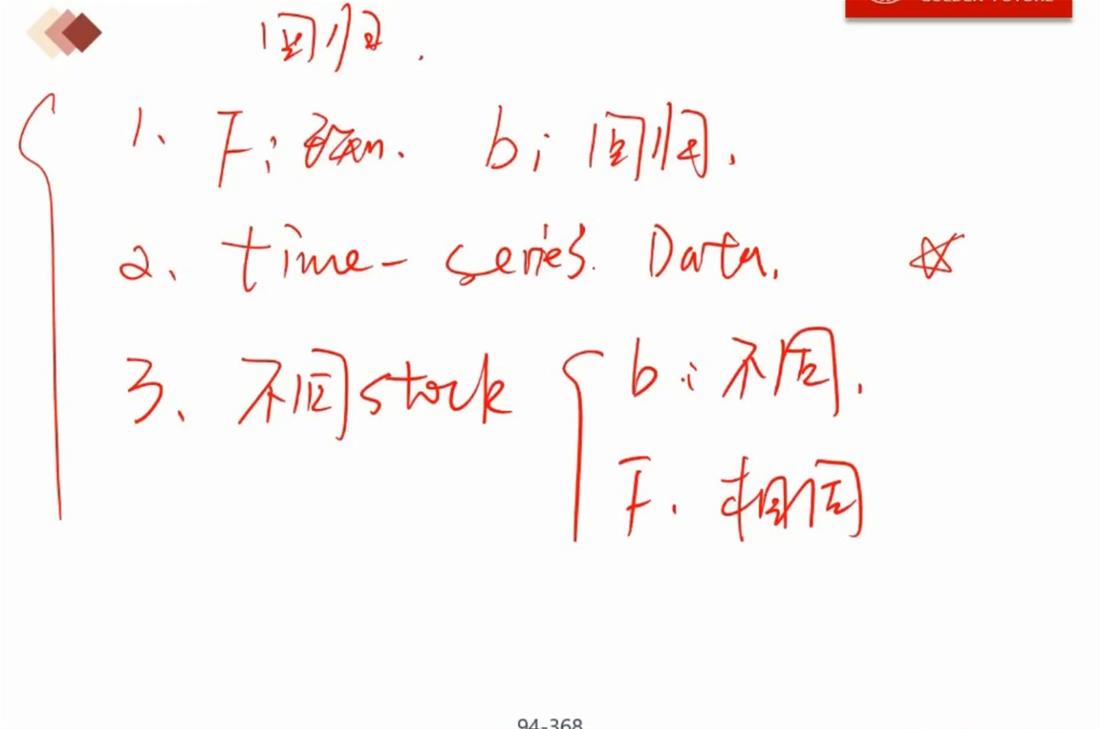 GOLDEN FUTURE
回归.
1、F: b: 回归.
2、time-series Data. ☆
3、不同stock { b: 不同.
F. 相同
94-368